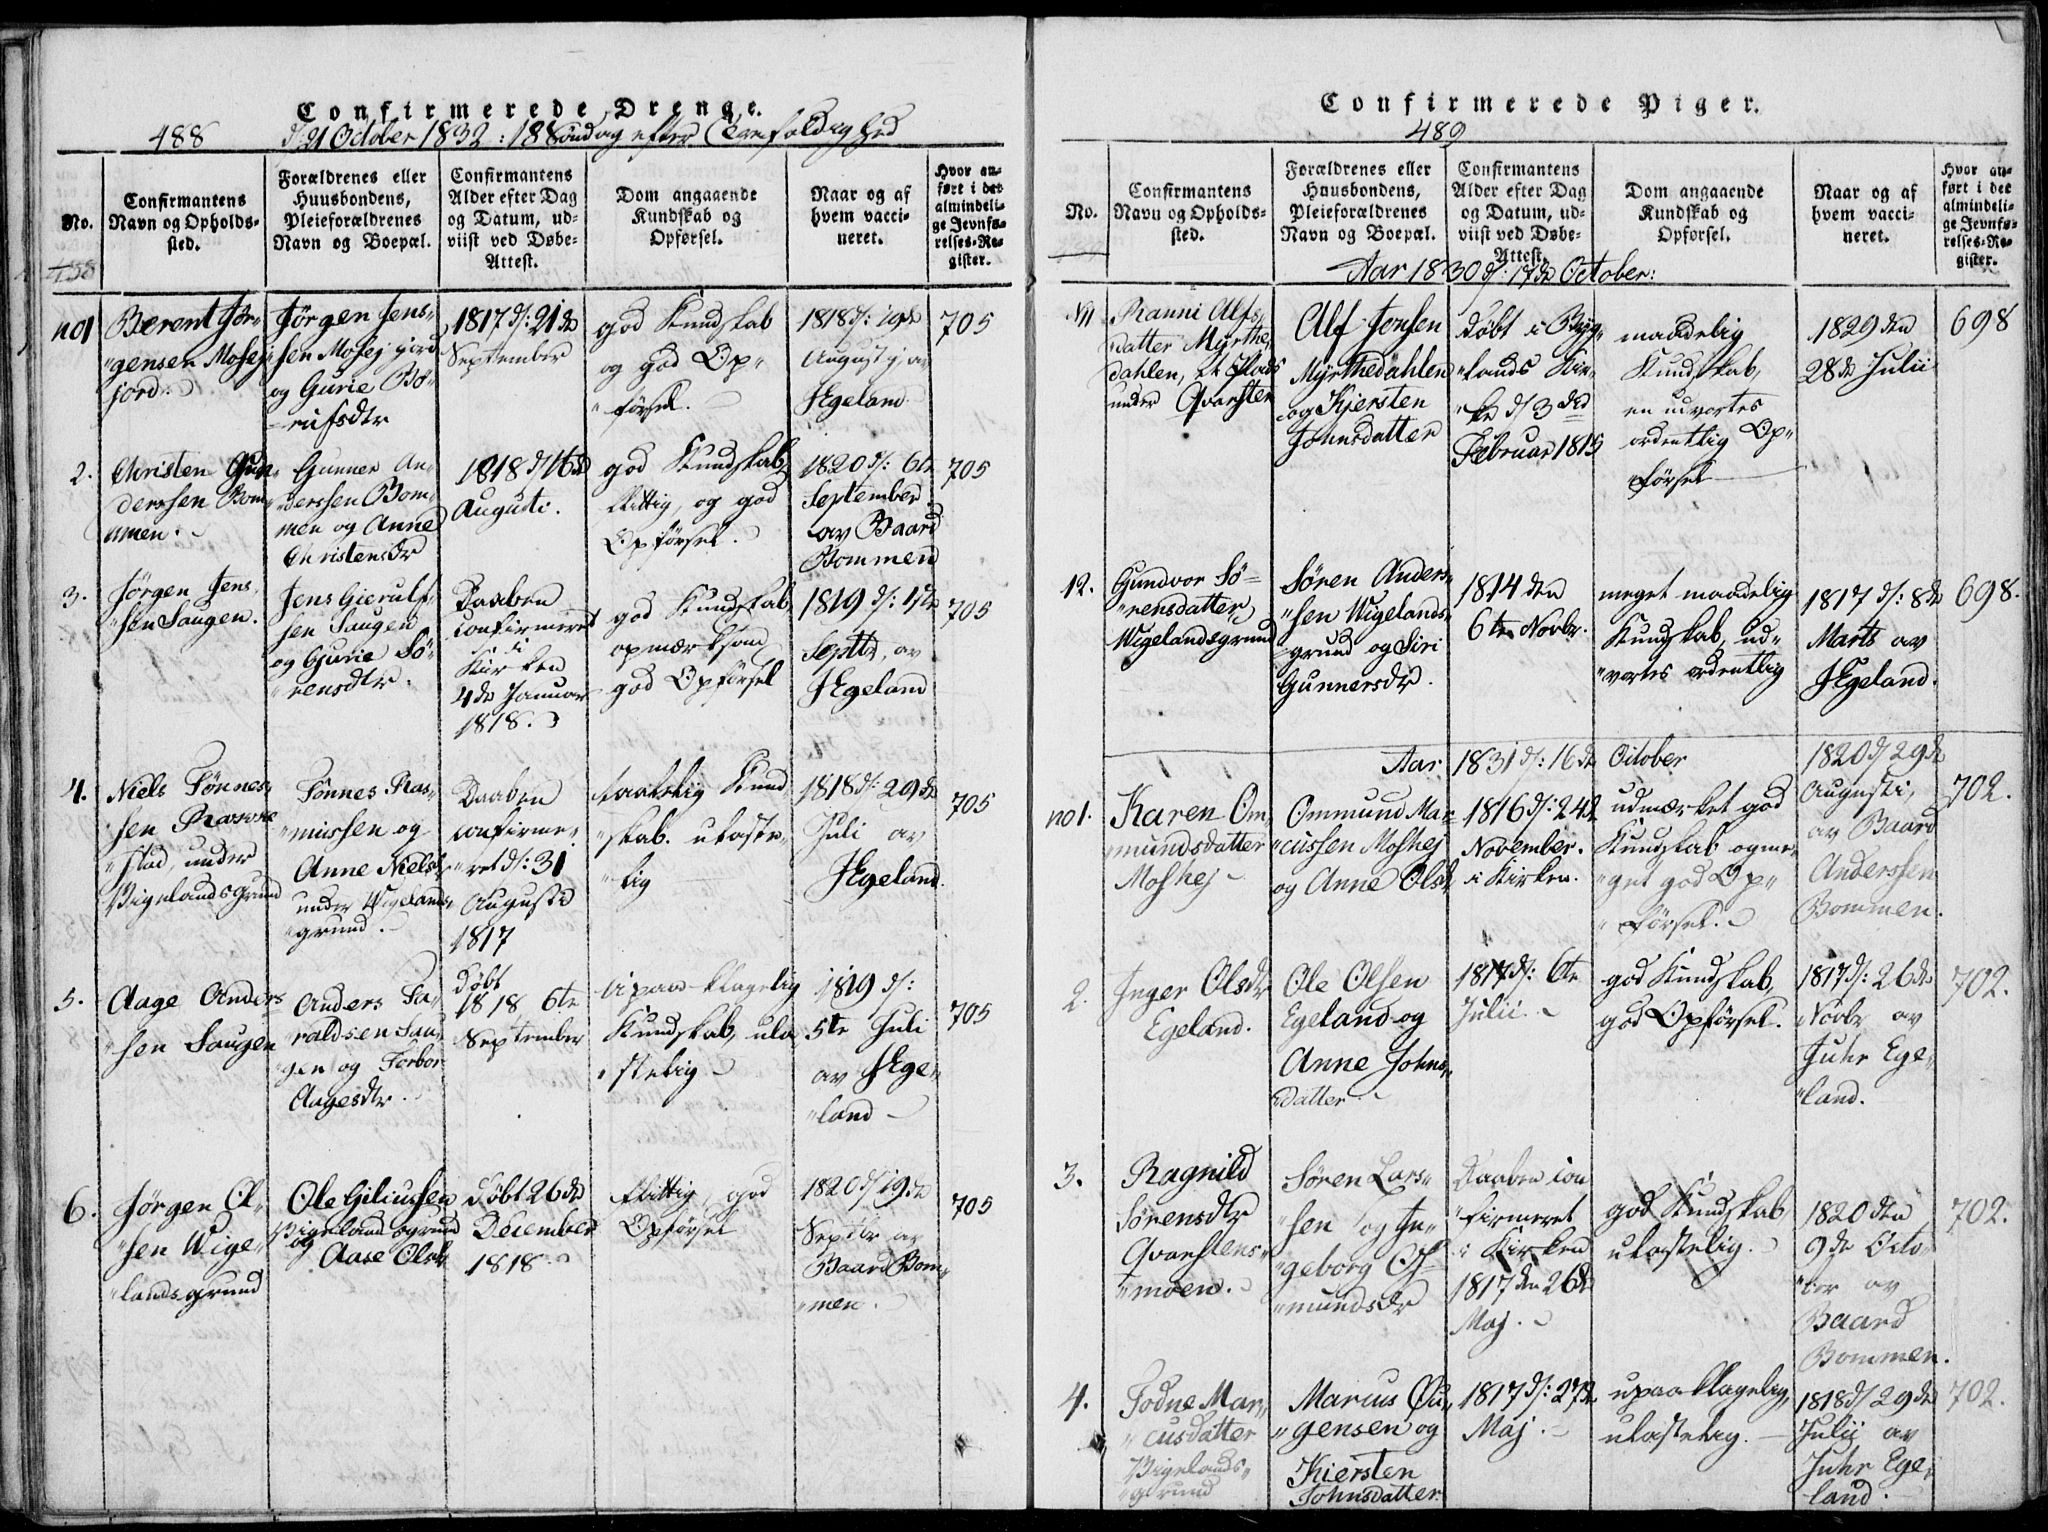 Confirmerede Drenge.
488 d/ 21 October 1832 : 18 Søndag efter Trefoldighed
No.
Confirmantens
Navn og Opholds-
sted.
Forældrenes eller
Huusbondens,
Pleieforældrenes
Navn og Boepæl.
Confirmantens
Alder efter Dag
og Datum, ud-
viist ved Døbe-
Attest.
Dom angaaende
Kundskab og
Opførsel.
Naar og af
hvem vacci-
neret.
Hvor an-
ført i det
almindeli-
ge Jevnfø-
relses-Re-
gister.
488
no1
Berent Jør-
"gensen Mosej
jord.
Jørgen Jens-
sen Mosej jord
og Gurie Bø-
rufsdtr
1817 d/: 21de
September
god Kundskab
og god Op"
"førsel.
1818 d/: 19de
August, av
JEgeland
705
2.
Christen Gun-
derssen Bom-
men.
Gunner An-
derssen Bom-
men og Anne
Christensdr
1818 d/ 16de
Augusti.
god Kundskab,
flittig, og god
Opførsel.
1820 d/: 6te
September
av Baard
Bommen
705
3.
Jørgen Jens-
"sen Saugen.
Jens Gierulf-
sen Saugen
og Gurie Sø-
rensdtr.
Daaben
confirmeret
i
Kirken
4de Januar
1818.
god Kundskab,
opmærksom
god Opførsel
1819 d/: 4te
Septbr, av
JEgeland
705
4.
Niels Tønnes-
sen
"stad, under
Vigelandsgrund
Tønnes Ras-
"mussen og
Anne Nielsdr
under Wigelands-
"grund.
Daaben
confirme-
"ret d/: 31
Augusti
1817
taalelig Kund
"skab. ulaste-
"lig
1818 d/: 29de
Juli av
JEgeland.
705
5.
Aage Anders
"sen Saugen
Anders Ta-
raldsen Sau-
"gen og Torbor
Aagesdtr.
døbt
1818 6te
September
upaa-klagelig
Kundskab, ula
"stelig
1819 d/:
5te Juli
av JEge-
"land
705
6.
Jørgen Ol-
"sen Wige-
"landsgrund
Ole Giliussen
Vigelandsgrund
og Aase Olsdr
døbt 26de
December
1818
flittig, god
Opførsel
1820 d/ 19de
Septbr av
Baard Bom-
"men.
705
Confirmerede Piger.
489
No.
Confirmantens
Navn og Opholds-
sted.
Forældrenes eller
Huusbondens,
Pleieforældrenes
Navn og Boepæl.
Confirmantens
Alder efter Dag
og Datum, ud-
viist ved Døbe-
Attest.
Dom angaaende
Kundskab og
Opførsel.
Naar og af
hvem vacci-
neret.
Hvor an-
ført i det
almindeli-
ge Jevnfø-
relses-Re-
gister.
Aar 1830 d/: 17de October:
N11
Ranni Alfs-
datter Myrthe-
dahlen, et Plads
under Qvarsten
Alf Jonsen
Myrthedahlen
og Kjersten
Jonnsdatter
døbt i Byg-
"lands Kir-
"ke d/ 3die
Februar 1815
maadelig
Kundskab,
en udvortes
ordentlig Op"
"førsel
1829 den
28de Julii
698
12.
Gundvor Sø-
"rensdatter,
Wigelandsgrund
Søren Anders-
"sen Wigelands-
grund og Siri
Gunnersdr.
1814 den
6te Novbr.
meget maadelig
Kundskab, ud-
"vortes ordentlig
1817 d/: 8de
Marts av
JEgeland.
698.
Aar 1831 d/: 16de October
no1.
Karen Om-
mundsdatter
Moshej
Ommund Mar-
"cussen Moshej
og Anne Olsdr
1816 d/: 24de
November.
i Kirken.
udmærket god
Kundskab og me-
"get god Op"
"førsel.
1820 d/ 29de
Augusti,
av Baard
Anderssen
Bommen.
702.
2.
Inger Olsdtr
Egeland.
Ole Olsen
Egeland og
Anne Johns-
datter.
1817 d/: 6te
Julii.
god Kundskab,
god Opførsel.
1817 d/: 26de
Novbr av
Juhr Ege-
"land.
702.
3.
Ragnild
Sørensdtr
Qvarstens-
"moen.
Søren Lars-
"sen og In-
"geborg Os-
"mundsdr
Daaben con
"firmeret
i Kirken
1817 den 26de
Maj.
god Kundskab,
ulastelig.
1820 den
9de Octo-
"ber av
Baard
Bommen.
702.
4.
Todne Mar-
"cusdatter
Vigelands-
"grund
Marcus Øu-
"gensen og
Kiersten
Johnsdatter.
1817 d/: 27de
Maj.
upaaklagelig,
ulastelig.
1818 d/ 29de
Julii av
Juhr Ege-
land.
702.